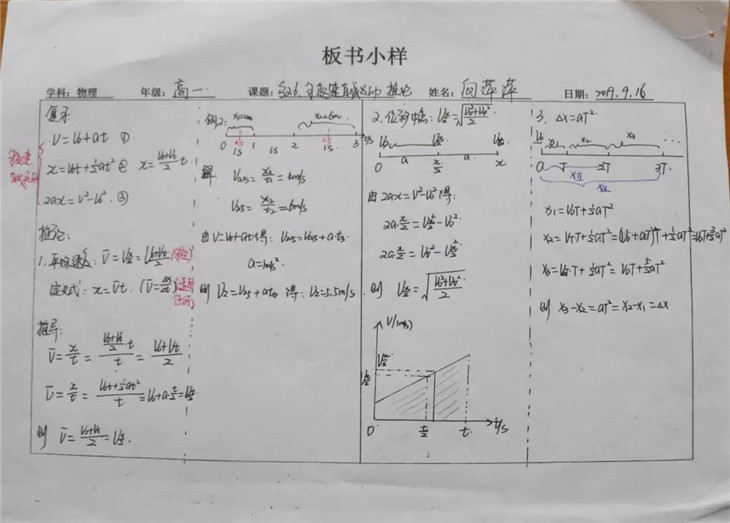 板书小样
学科: 物理 年级: 高一 课题: §2.6 匀变速直线运动推论 姓名: 闵萍萍 日期: 2019.9.16
复习
V=V₀+at ①
x=V₀t+½at² ② x=(V₀+Vt)/2 t
2ax=V²-V₀² ③
推论:
1. 平均速度: V̄=V_(t/2)=(V₀+Vt)/2
定义式: x=V̄t. (V̄=Δx/Δt)
推导:
V̄=x/t=((V₀+Vt)/2·t)/t=(V₀+Vt)/2
V̄=x/t=(V₀t+½at²)/t=V₀+a·t/2=V_(t/2)
则 V̄=(V₀+Vt)/2=V_(t/2).
例2:
0 1 2 3 t/s
1S 1S 1S
解
V₀.₅=x₁/t₁=4m/s
V₂.₅=x₂/t₂=6m/s
由V=V₀+at得: V₂.₅=V₀.₅+at₃
a=1m/s²
则 V₂=V₀.₅+at₄ 得: V₂=5.5m/s.
2. 位移中点: V_(x/2)=√((V₀²+Vt²)/2)
0 a x/2 a x
由 2ax=V²-V₀²得:
2a·x/2=V_(x/2)²-V₀²
2a·x/2=Vt²-V_(x/2)²
则 V_(x/2)=√((V₀²+Vt²)/2)
V/(m/s)
V_(x/2)
V_(t/2)
0 t/2 t t/s
3. Δx=aT²
V₀ x₁ x₂ x₃
0 T 2T 3T
x₁=V₀T+½aT²
x₂=V₁T+½aT²=(V₀+aT)T+½aT²=V₀T+3/2aT²
x₃=V₂T+½aT²=V₀T+5/2aT²
则 x₃-x₂=aT²=x₂-x₁=Δx